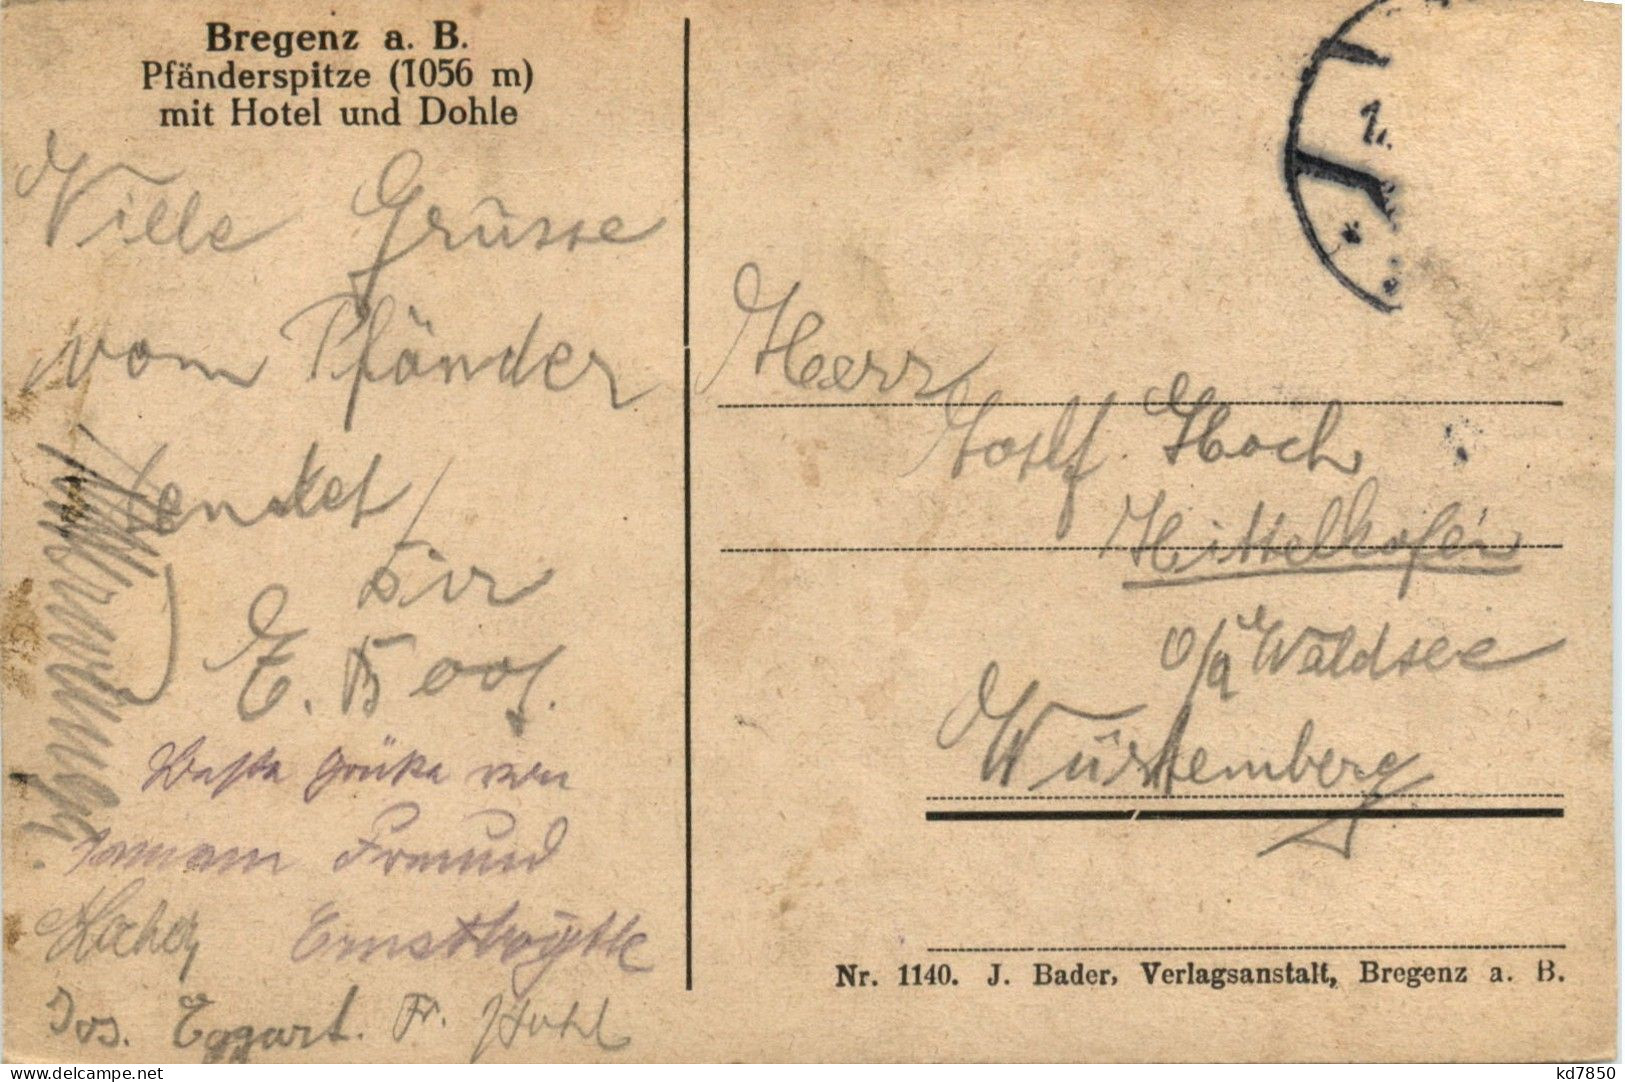 Bregenz a. B.
Pfänderspitze (1056 m)
mit Hotel und Dohle
Ville Grüsse
vom Pfänder
sendet
Dir
E. Boos.
Beste Grüße von
Freund
Jos. Eggart. Fr. Hohl
Herr
Hoch
Hittelkofen
O/A Waldsee
Würtemberg
1.
Nr. 1140. J. Bader, Verlagsanstalt, Bregenz a. B.
www.delcampe.net
kd7850